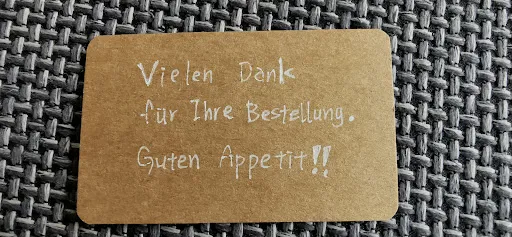 Vielen Dank
für Ihre Bestellung.
Guten Appetit!!